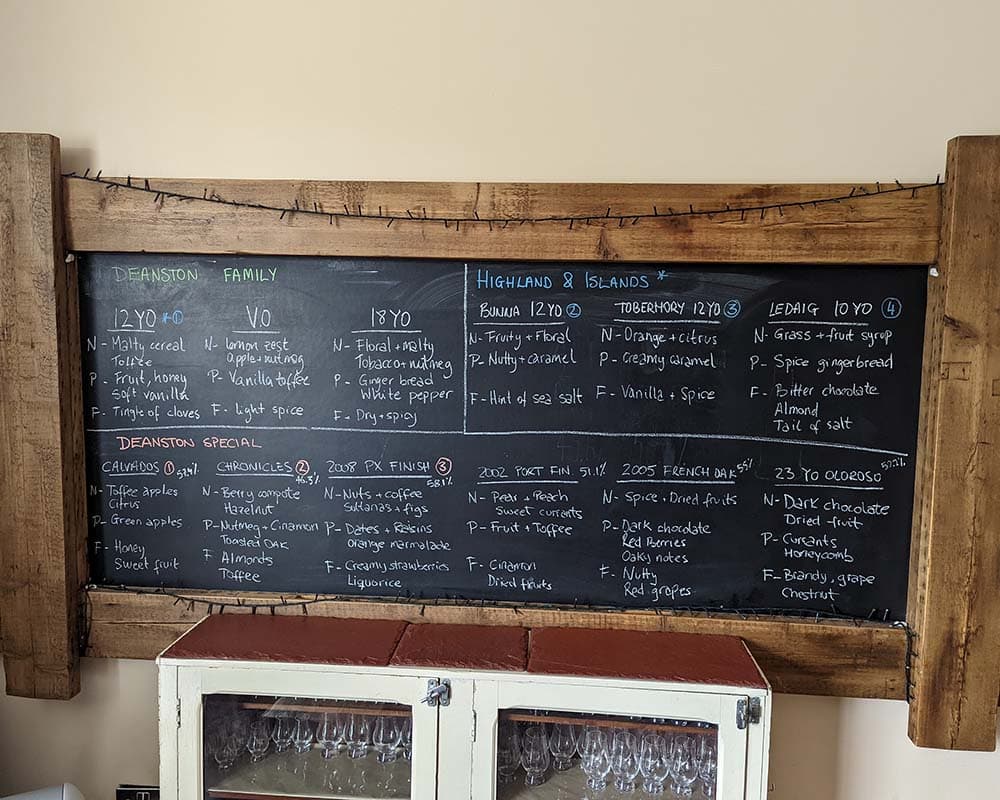 DEANSTON FAMILY
12YO *①
N - Malty cereal
Toffee
P - Fruit, honey
Soft vanilla
F - Tingle of cloves
V.O
N - lemon zest
apple + nutmeg
P - Vanilla toffee
F - light spice
18YO
N - Floral + malty
Tobacco + nutmeg
P - Ginger bread
White pepper
F - Dry + spicy
HIGHLAND & ISLANDS *
BUNNA 12YO ②
N - Fruity + Floral
P - Nutty + caramel
F - Hint of sea salt
TOBERMORY 12YO ③
N - Orange + citrus
P - Creamy caramel
F - Vanilla + Spice
LEDAIG 10YO ④
N - Grass + fruit syrop
P - Spice gingerbread
F - Bitter chocolate
Almond
Tail of salt
DEANSTON SPECIAL
CALVADOS ①
N - Toffee apples
Citrus
P - Green apples
F - Honey
Sweet fruit
CHRONICLES ② 46.3%
N - Berry compote
Hazelnut
P - Nutmeg + Cinnamon
Toasted OAK
F Almonds
Toffee
2008 PX FINISH ③ 58.1%
N - Nuts + coffee
Sultanas + figs
P - Dates + Raisins
Orange marmalade
F - Creamy strawberries
Liquorice
2002 PORT FIN 51.1%
N - Pear + Peach
Sweet currants
P - Fruit + Toffee
F - Cinamon
Dried fruits
2005 FRENCH OAK
N - Spice + Dried fruits
P - Dark chocolate
Red Berries
Oaky notes
F - Nutty
Red grapes
23 YO OLOROSO
N - Dark chocolate
Dried fruit
P - Currants
Honeycomb
F - Brandy, grape
Chestnut